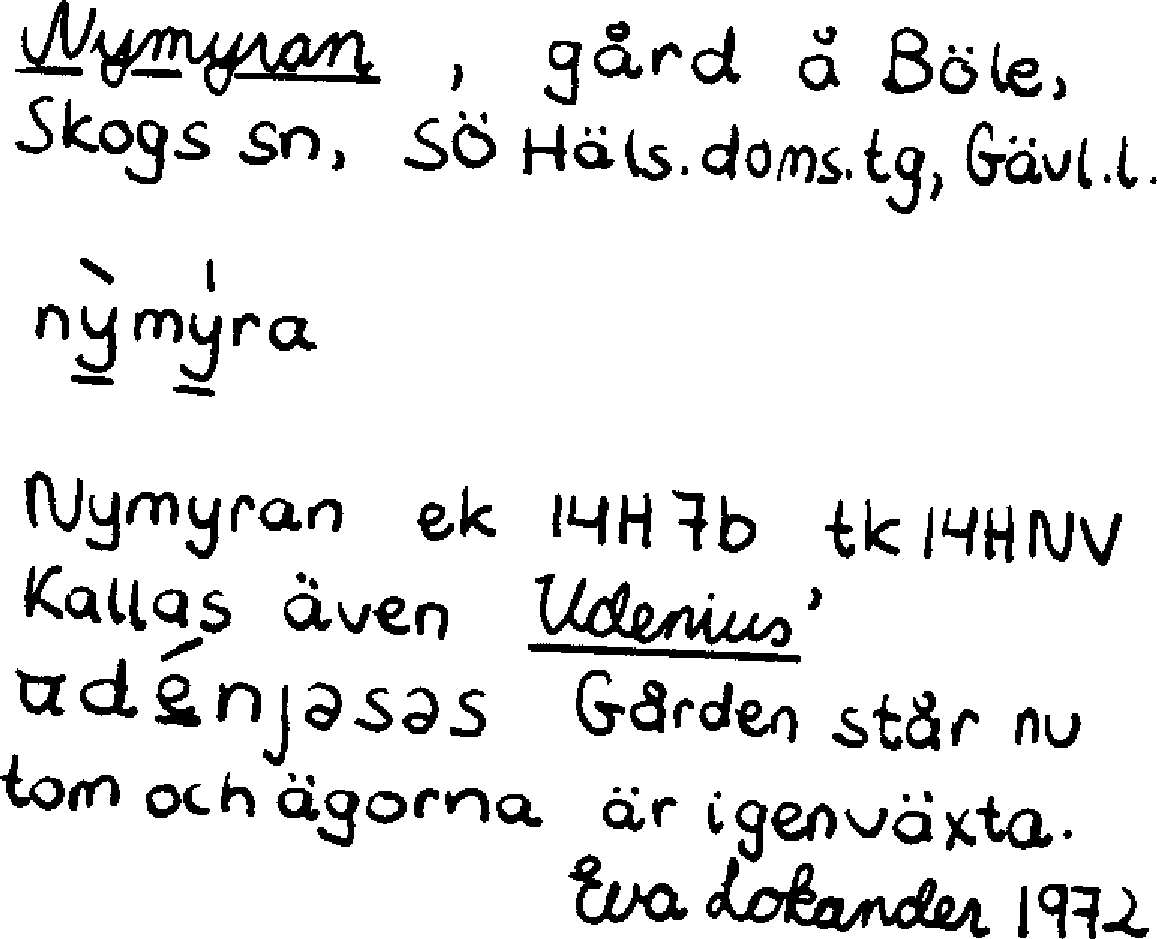 Nymyran, gård å Böle,
Skogs sn, SÖ Häls.doms.tg, Gävl.l.
nỳmýra
Nymyran ek 14H7b tk 14HNV
Kallas även Udenius'
udénjəsəs Gården står nu
tom och ägorna är igenväxta.
Eva Lokander 1972